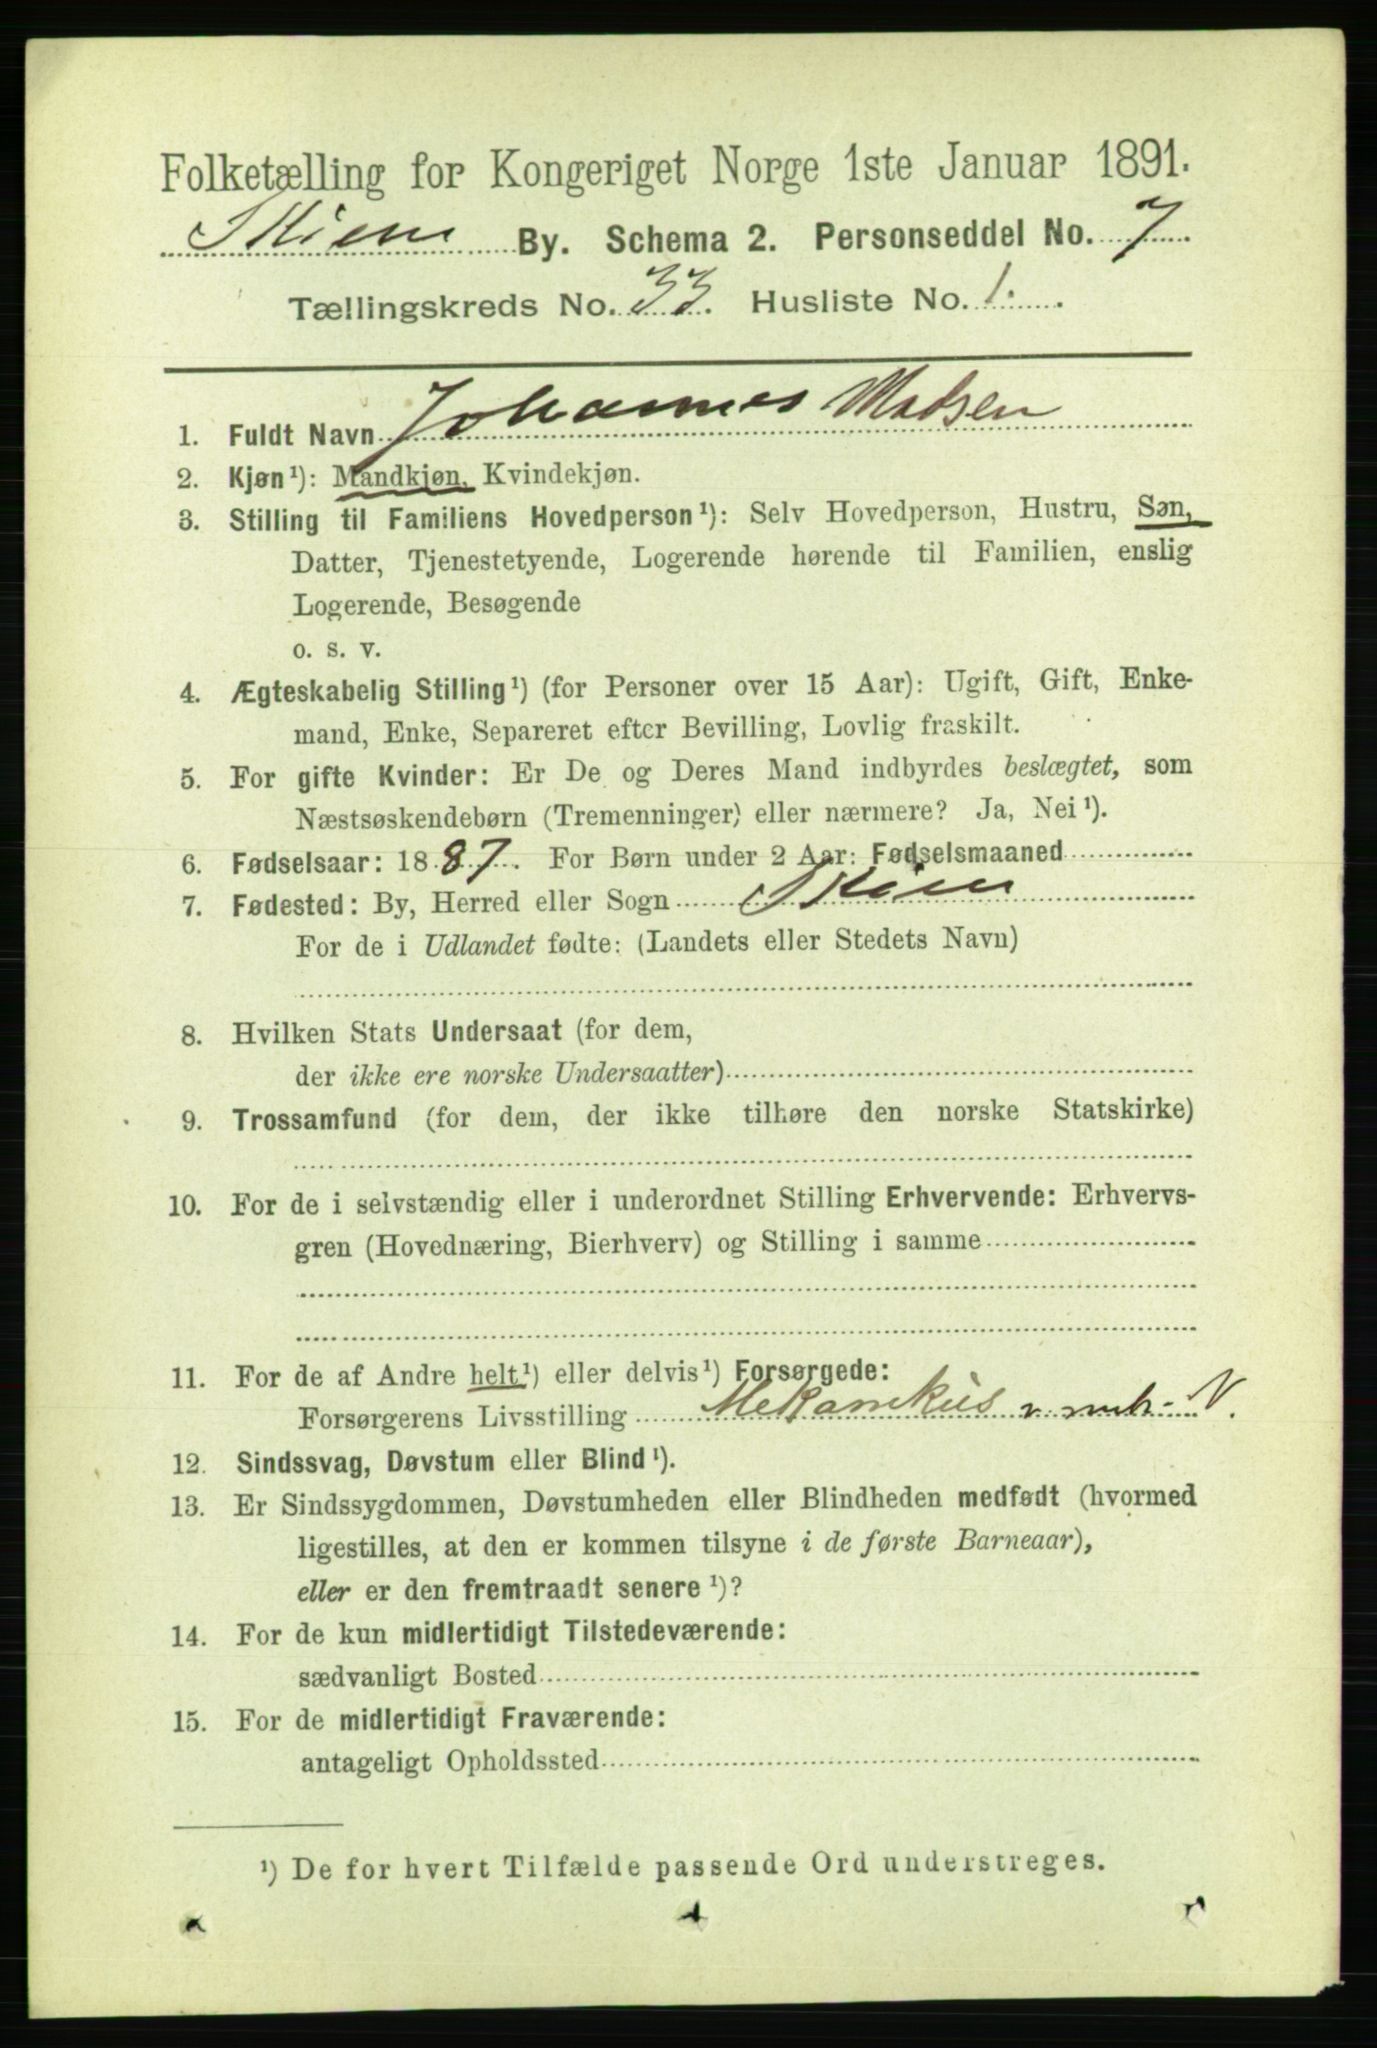 Folketælling for Kongeriget Norge 1ste Januar 1891.
Skien By. Schema 2. Personseddel No. 7
Tællingskreds No. 33. Husliste No. 1.
1. Fuldt Navn Johannes Madsen
2. Kjøn¹): Mandkjøn, Kvindekjøn.
3. Stilling til Familiens Hovedperson¹): Selv Hovedperson, Hustru, Søn,
Datter, Tjenestetyende, Logerende hørende til Familien, enslig
Logerende, Besøgende
o. s. v.
4. Ægteskabelig Stilling¹) (for Personer over 15 Aar): Ugift, Gift, Enke-
mand, Enke, Separeret efter Bevilling, Lovlig fraskilt.
5. For gifte Kvinder: Er De og Deres Mand indbyrdes beslægtet, som
Næstsøskendebørn (Tremenninger) eller nærmere? Ja, Nei¹).
6. Fødselsaar: 1887. For Børn under 2 Aar: Fødselsmaaned
7. Fødested: By, Herred eller Sogn Skien
For de i Udlandet fødte: (Landets eller Stedets Navn)
8. Hvilken Stats Undersaat (for dem,
der ikke ere norske Undersaatter)
9. Trossamfund (for dem, der ikke tilhøre den norske Statskirke)
10. For de i selvstændig eller i underordnet Stilling Erhvervende: Erhvervs-
gren (Hovednæring, Bierhverv) og Stilling i samme
11. For de af Andre helt¹) eller delvis¹) Forsørgede:
Forsørgerens Livsstilling Mekanikus v. mek. V.
12. Sindssvag, Døvstum eller Blind¹).
13. Er Sindssygdommen, Døvstumheden eller Blindheden medfødt (hvormed
ligestilles, at den er kommen tilsyne i de første Barneaar),
eller er den fremtraadt senere¹)?
14. For de kun midlertidigt Tilstedeværende:
sædvanligt Bosted
15. For de midlertidigt Fraværende:
antageligt Opholdssted
¹) De for hvert Tilfælde passende Ord understreges.